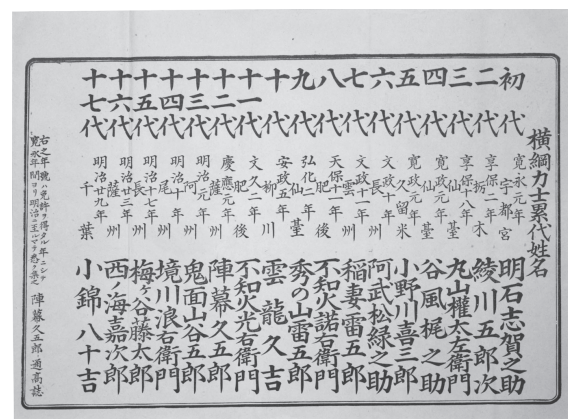 横綱力士累代姓名
初代 寛永元年 宇都宮 明石志賀之助
二代 享保二年 栃木 綾川五郎次
三代 享保十八年 仙臺 丸山權太左衛門
四代 寛政元年 仙臺 谷風梶之助
五代 寛政元年 久留米 小野川喜三郎
六代 文政十一年 長州 阿武松緑之助
七代 文政十一年 雲州 稲妻雷五郎
八代 天保十一年 肥後 不知火諾右衛門
九代 弘化二年 仙臺 秀の山雷五郎
十代 安政五年 柳川 雲龍久吉
十一代 文久二年 肥後 不知火光右衛門
十二代 慶應元年 薩州 陣幕久五郎
十三代 明治元年 阿州 鬼面山谷五郎
十四代 明治十年 尾州 境川浪右衛門
十五代 明治十七年 長州 梅ヶ谷藤太郎
十六代 明治廿三年 薩州 西ノ海嘉次郎
十七代 明治廿九年 千葉 小錦八十吉
右之年號ハ免許ヲ得タル年ニシテ
寛永年間ヨリ明治ニ至ルマテ悉ク
陣幕久五郎通高誌